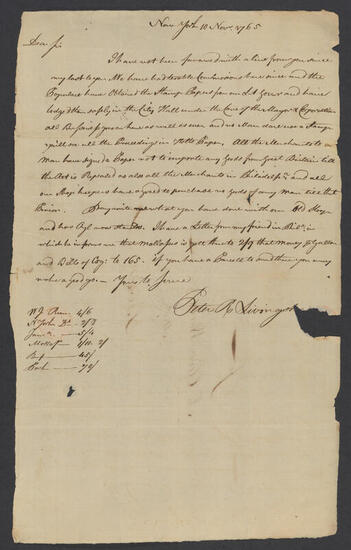 New York 10 Nov. 1765
Dear Sir
I have not been favoured with a line from you since
my last to you. We have had terrible Confusions here since and the
Populace have Obtained the Stamp Papers from our Lt Govr. and have
lodged them safely in the City Hall under the Care of the Mayor & Corporation
all Business is given here as well as over and no Man dare use a Stamp
will on all the Proceedings in Publk Papers. All the Merchants to a
Man have signed a Paper not to import any Goods from Great Britain till
the Act is Repealed as also all the Merchants in Philadelpa. and all
our Shop keepers have agreed to purchase no Goods of any man till that
Period. what you have done with our Old Sloop
and how Age now stands. I have a Letter from my friend in
which he informs me that molasses is got there to 2/9 that money Gallon
and Bills of to 165. if you have a Parcell to send there you may
make a good Yours to Serve
Peter R Livingston
W I Rum 4/6
St Do 2/8
Jama. 5/4
Molass 1/11 2/
45/
Pork 72/